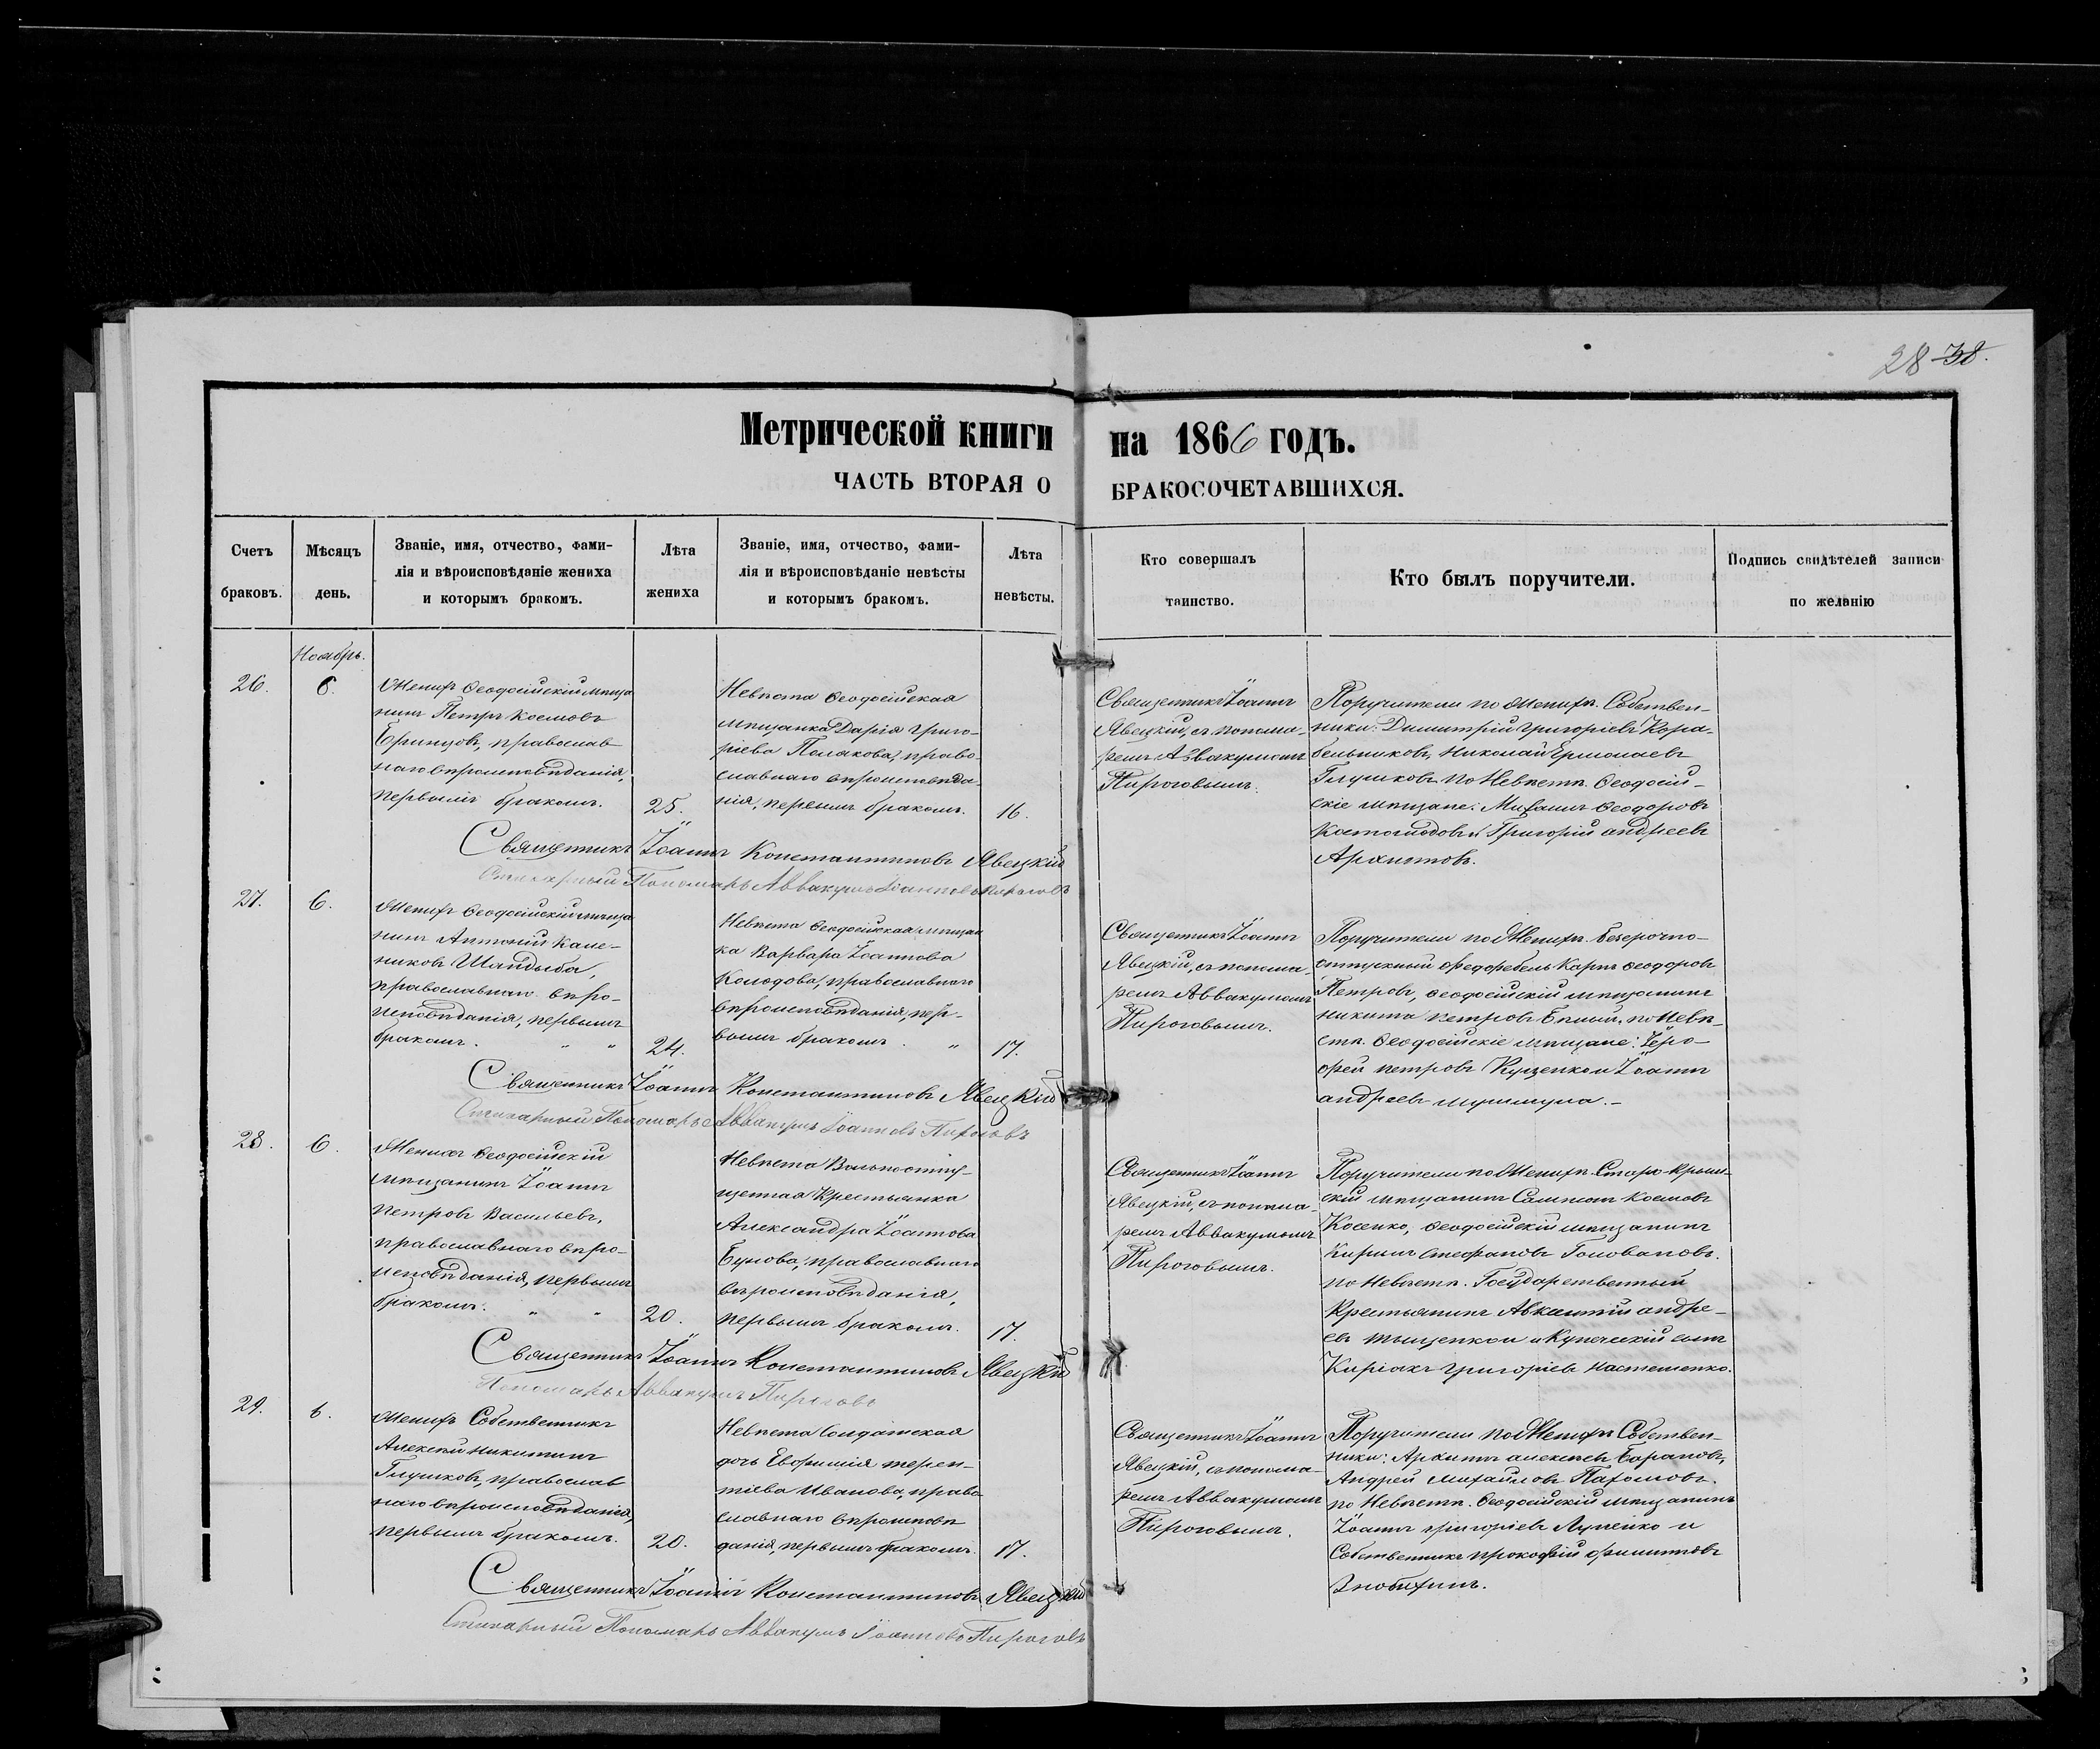 28 38.
Метрической книги на 1866 годъ.
ЧАСТЬ ВТОРАЯ О БРАКОСОЧЕТАВШИХСЯ.
Счетъ браковъ.
Мѣсяцъ день.
Званіе, имя, отчество, фами-
лія и вѣроисповѣданіе жениха
и которымъ бракомъ.
Лѣта жениха
Званіе, имя, отчество, фами-
лія и вѣроисповѣданіе невѣсты
и которымъ бракомъ.
Лѣта невѣсты.
Кто совершалъ
таинство.
Кто былъ поручители.
Подпись свидѣтелей записи
по желанію
Ноябрь.
26.
6.
Женихъ Ѳеодосійскій мѣща
нинъ Петръ Космовъ
православ
наго вѣроисповѣданія,
первымъ бракомъ.
25.
Невѣста Ѳеодосійская
мѣщанка Дарія Григо-
ріева Полякова, право-
славнаго вѣроисповѣда-
нія, первымъ бракомъ.
16.
Священникъ Іоаннъ
Явецкій, съ понома-
ремъ Аввакумомъ
Пироговымъ.
Поручители по Женихѣ. Собствен-
ники: Димитрій Григоріевъ Кора-
бельниковъ, Николай Ермолаевъ
Глушковъ. по Невѣстѣ. Ѳеодосій-
скіе мѣщане: Михаилъ Ѳеодоровъ
и Григорій Андреевъ
Священникъ Іоаннъ Константиновъ Явецкій
Стихарный Пономарь Аввакумъ Іоанновъ Пироговъ
27.
6.
Женихъ Ѳеодосійскій мѣща
нинъ Антоній Кале-
никовъ Шандыба,
православнаго вѣро-
исповѣданія, первымъ
бракомъ. " "
24.
Невѣста Ѳеодосійская мѣщан
ка Варвара Іоаннова
Колодова, православнаго
вѣроисповѣданія, пер-
вымъ бракомъ. "
17.
Священникъ Іоаннъ
Явецкій, съ понома-
ремъ Аввакумомъ
Пироговымъ.
Поручители по Женихѣ. безсрочно-
отпускный Карпъ Ѳеодоровъ
Петровъ, Ѳеодосійскій мѣщанинъ
Никита Петровъ по Невѣ-
стѣ. Ѳеодосійскіе мѣщане: Іеро-
фей Петровъ Куценко и Іоаннъ
Андреевъ
Священникъ Іоаннъ Константиновъ Явецкій
Стихарный Пономарь Аввакумъ Іоанновъ Пироговъ
28.
6.
Женихъ Ѳеодосійскій
мѣщанинъ Іоаннъ
Петровъ Васильевъ,
православнаго вѣро-
исповѣданія, первымъ
бракомъ. " "
20.
Невѣста Вольноотпу-
щенная Крестьянка
Александра Іоаннова
православнаго
вѣроисповѣданія,
первымъ бракомъ.
17.
Священникъ Іоаннъ
Явецкій, съ понома-
ремъ Аввакумомъ
Пироговымъ.
Поручители по Женихѣ. Старо-Крым-
скій мѣщанинъ Самсонъ Космовъ
Косенко, Ѳеодосійскій мѣщанинъ
Кирилъ Стефановъ Головановъ.
по Невѣстѣ. Государственный
Крестьянинъ Авксентій Андре-
евъ и Купеческій сынъ
Киріакъ Григоріевъ Настешенко.
Священникъ Іоаннъ Константиновъ Явецкій
Пономарь Аввакумъ Пироговъ
29.
6.
Женихъ Собственникъ
Алексѣй Никитинъ
Глушковъ, православ
наго вѣроисповѣданія,
первымъ бракомъ.
20.
Невѣста Солдатская
дочь Евфимія Терен-
тіева Иванова, право
славнаго вѣроисповѣ
данія, первымъ бракомъ.
17.
Священникъ Іоаннъ
Явецкій, съ понома-
ремъ Аввакумомъ
Пироговымъ.
Поручители по Женихѣ Собствен-
ники: Архипъ Алексѣевъ Барановъ,
Андрей Михайловъ Пахомовъ.
по Невѣстѣ. Ѳеодосійскій мѣщанинъ
Іоаннъ Григоріевъ Лупейко и
Собственникъ Прокофій Филиповъ
Священникъ Іоаннъ Константиновъ Явецкій
Стихарный Пономарь Аввакумъ Іоанновъ Пироговъ